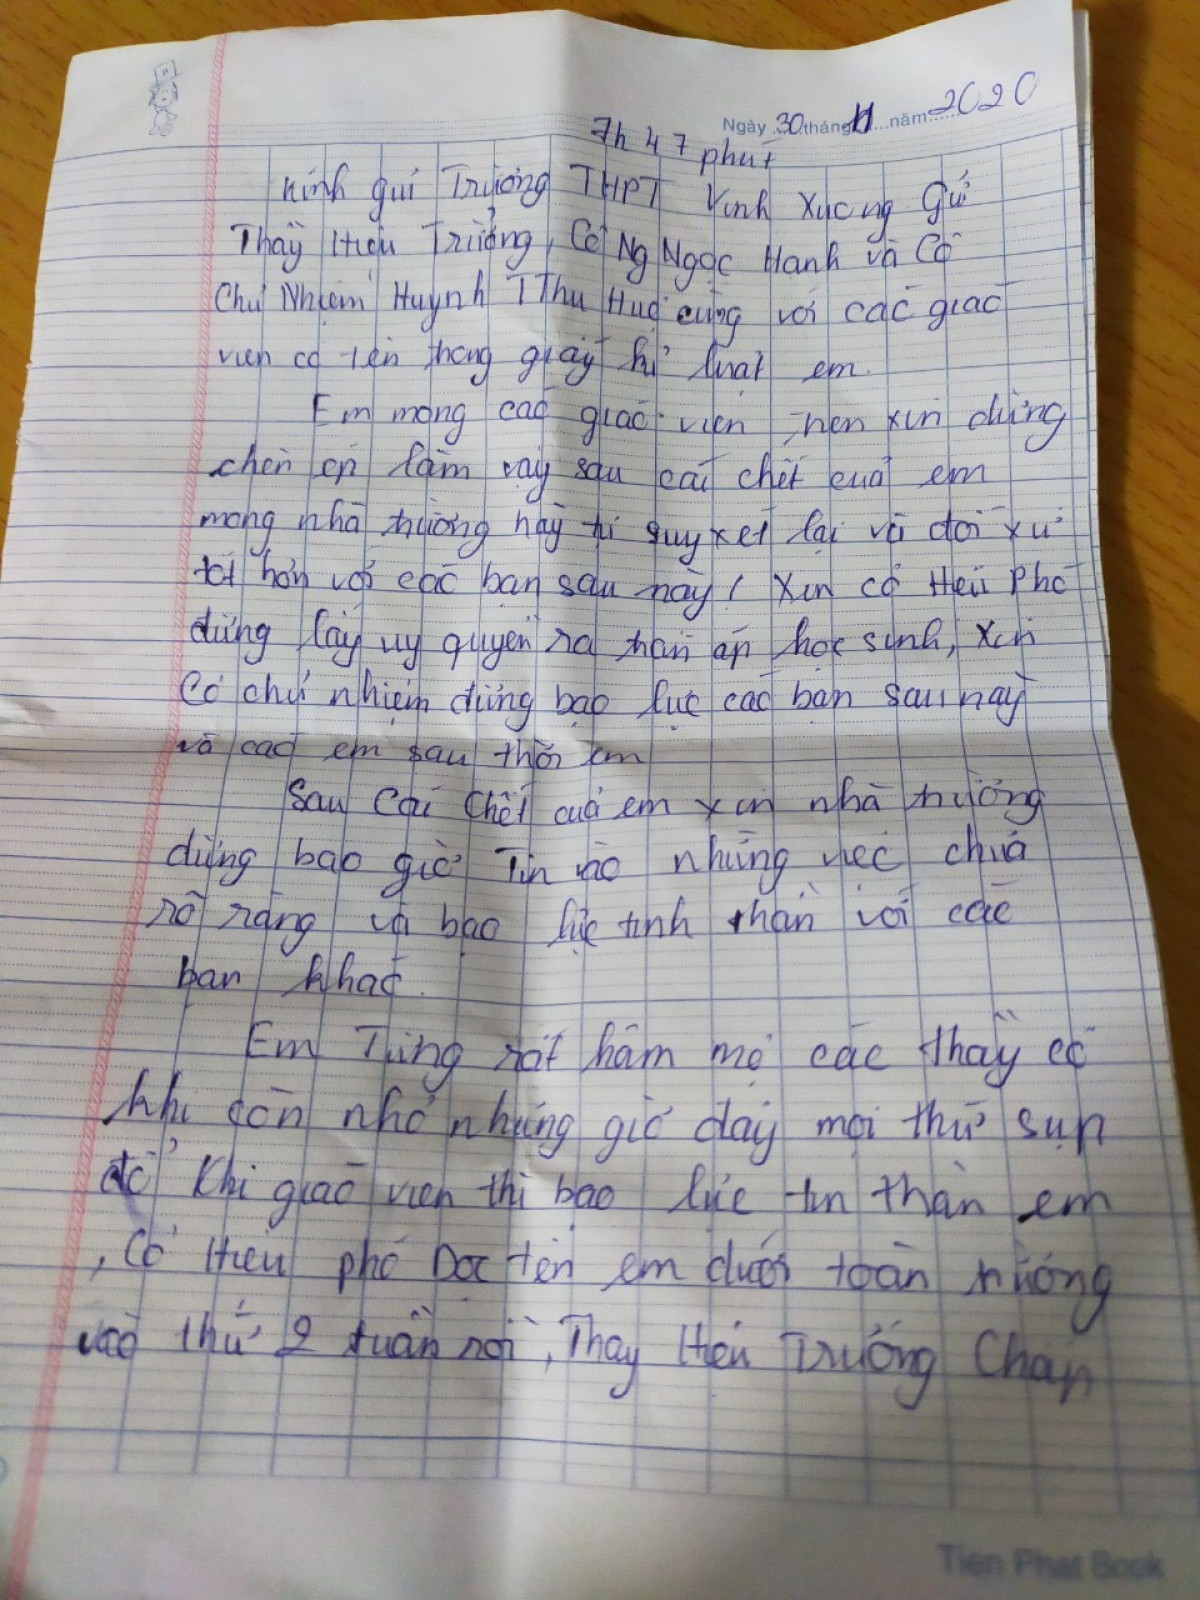 Ngày 30 tháng 11 năm 2020
7h 47 phút
Kính gửi Trường THPT Vĩnh Xương Gửi
Thầy Hiệu Trưởng, Cô Ng Ngọc Hạnh và Cô
Chủ Nhiệm Huỳnh T Thu Huệ cùng với các giáo
viên có tên trong giấy kỉ luật em.
Em mong các giáo viên nên xin đừng
chèn ép làm vậy sau cái chết của em
mong nhà trường hãy tự suy xét lại và đối xử
tốt hơn với các bạn sau này! Xin cô Hiệu Phó
đừng lấy uy quyền ra trấn áp học sinh, xin
Cô chủ nhiệm đừng bạo lực các bạn sau này
và các em sau thời em
Sau Cái Chết của em xin nhà trường
đừng bao giờ Tin vào những việc chưa
rõ ràng và bạo lực tinh thần với các
bạn khác.
Em Từng rất hâm mộ các thầy cô
khi còn nhỏ nhưng giờ đây mọi thứ sụp
đổ Khi giáo viên thì bạo lực tin thần em
, Cô Hiệu phó Đọc tên em dưới toàn trường
vào thứ 2 tuần rồi, Thầy Hiệu Trưởng Chấp
Tien Phat Book